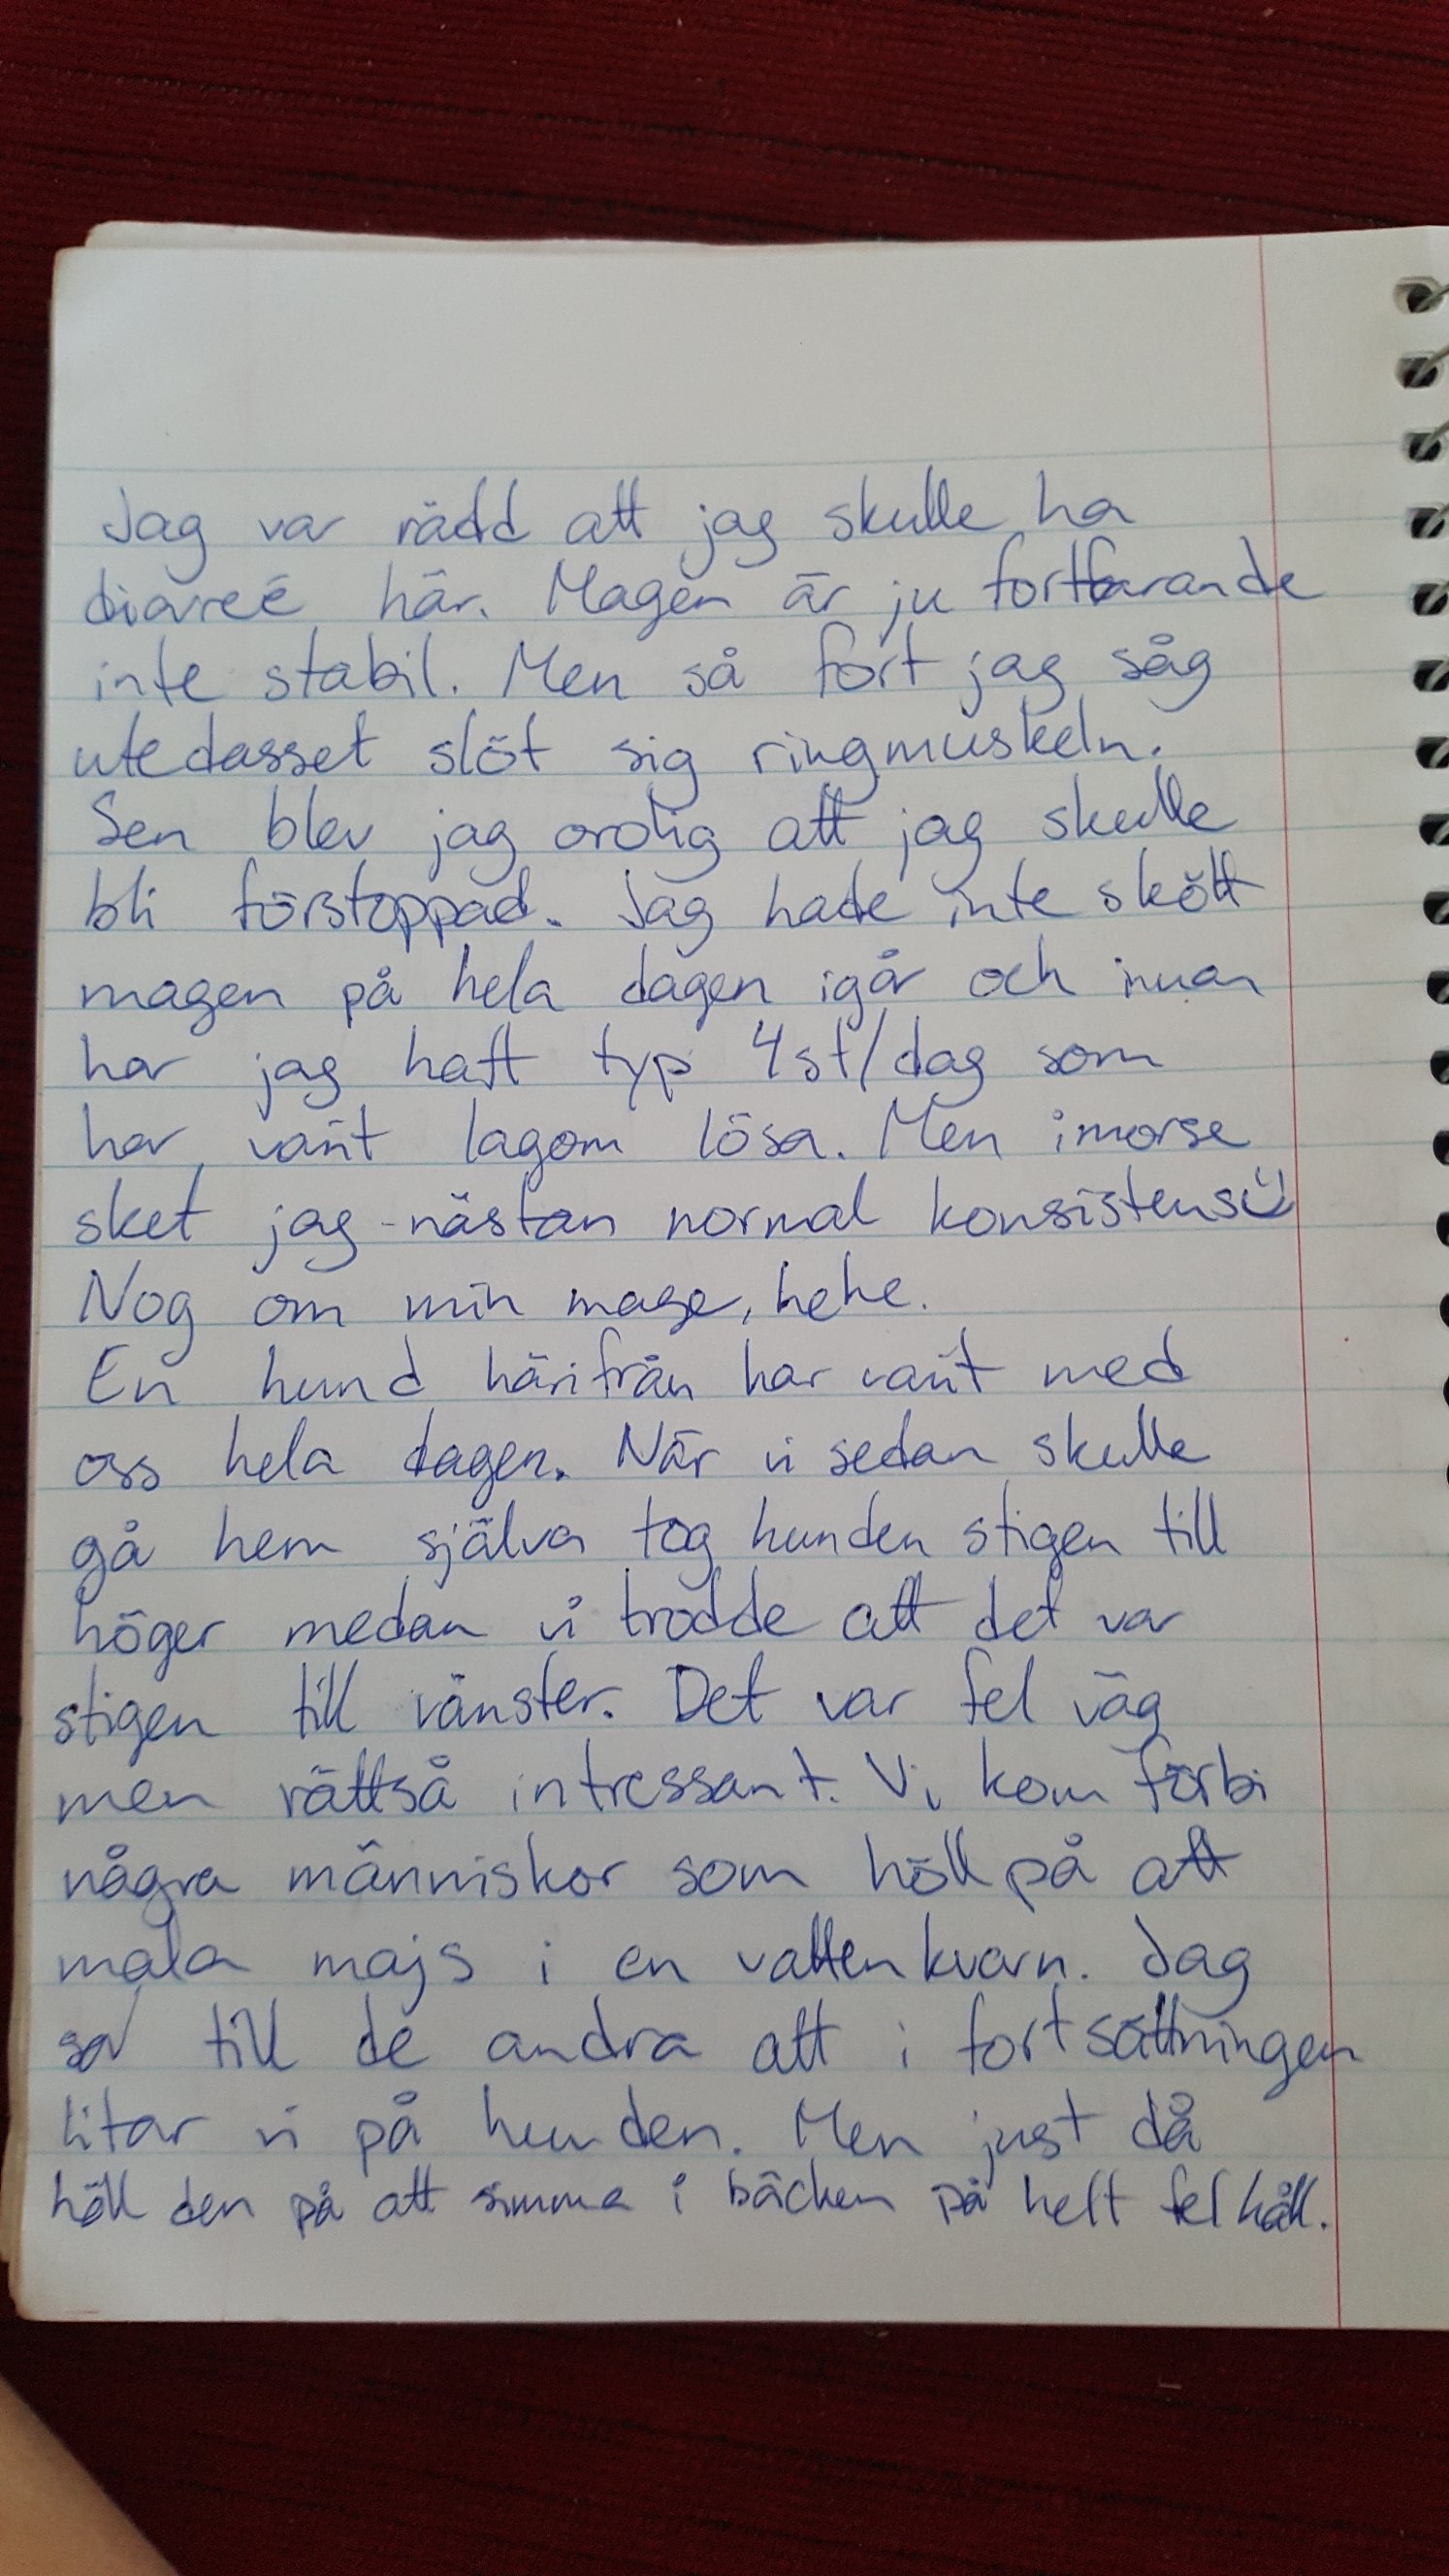 Jag var rädd att jag skulle ha
diareé här. Magen är ju fortfarande
inte stabil. Men så fort jag såg
utedasset slöt sig ringmuskeln.
Sen blev jag orolig att jag skulle
bli förstoppad. Jag hade inte skött
magen på hela dagen igår och innan
har jag haft typ 4st/dag som
har varit lagom lösa. Men imorse
sket jag nästan normal konsistens ü
Nog om min mage, hehe.
En hund härifrån har varit med
oss hela dagen. När vi sedan skulle
gå hem själva tog hunden stigen till
höger medan vi trodde att det var
stigen till vänster. Det var fel väg
men rättså intressant. Vi kom förbi
några människor som höll på att
mala majs i en vattenkvarn. Jag
sa till de andra att i fortsättningen
litar vi på hunden. Men just då
höll den på att simma i bäcken på helt fel håll.